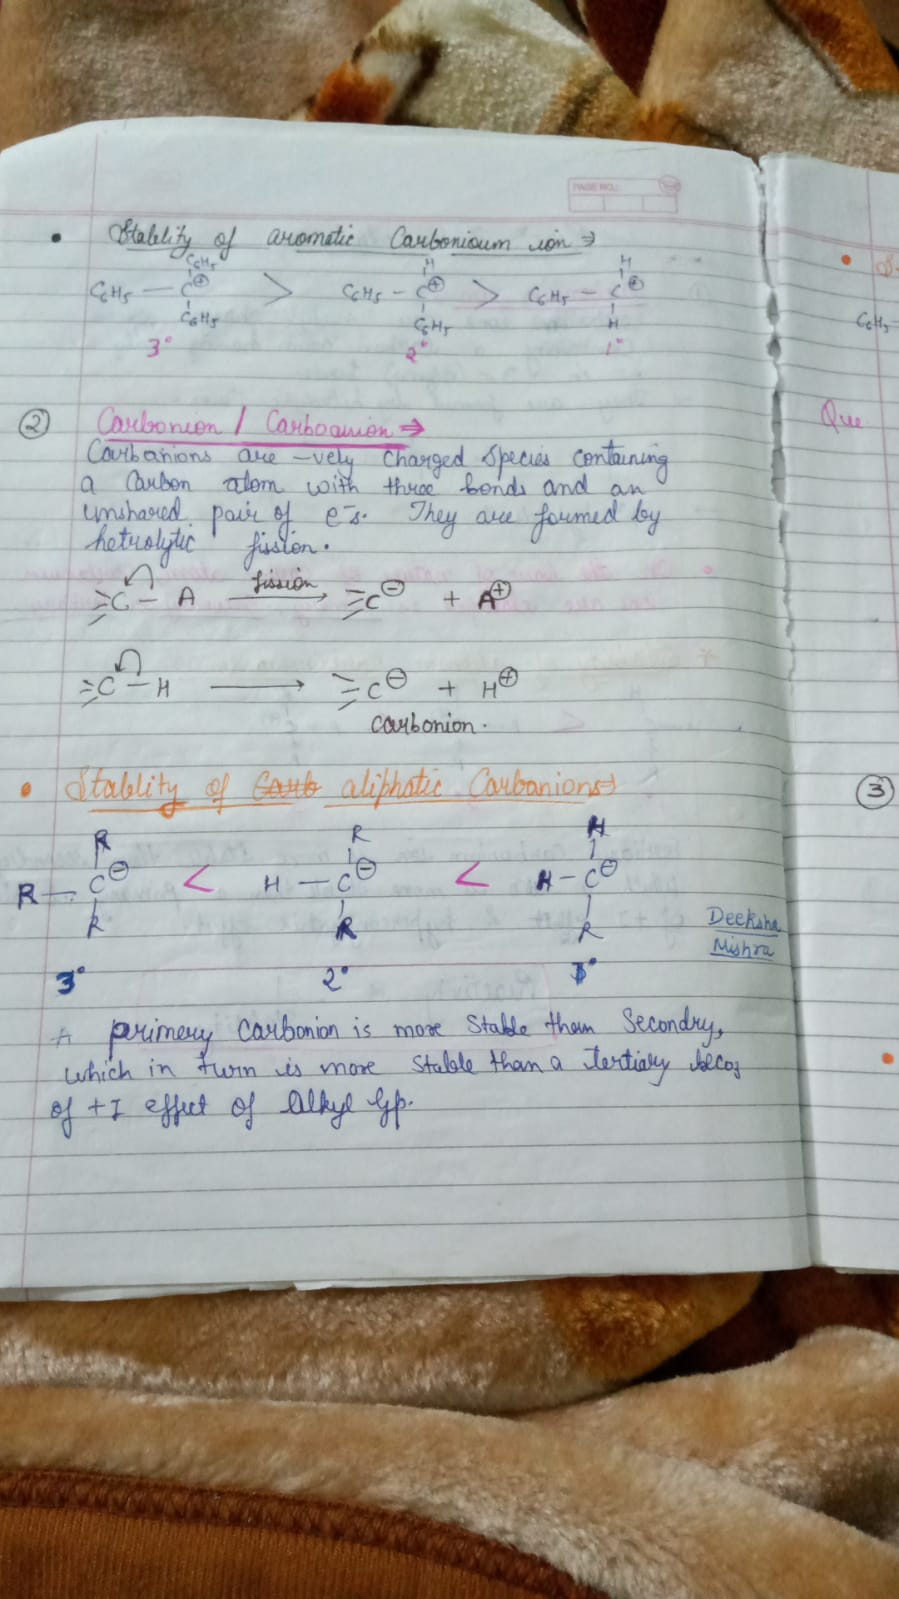 PAGE NO.:
• Stablity of aromatic Carbonioum ion ⇒
C6H5 C6H5 — C⊕ C6H5 > H C6H5 — C⊕ C6H5 > H C6H5 — C⊕ H
3° 2° 1°
② Carbonion / Carboanion ⇒
Carbanions are –vely charged species containing
a Carbon atom with three bonds and an
unshared pair of e⁻s. They are formed by
hetrolytic fission.
C — A fission → C⊖ + A⊕
C — H → C⊖ + H⊕
carbonion.
• Stablity of aliphatic Carbanions→
R R — C⊖ R < R H — C⊖ R < H H — C⊖ R
Deeksha
Mishra
3° 2° 1°
A primery carbonion is more stable than Secondry,
which in turn is more stable than a tertiary becoz
of +I effect of alkyl Gp.
C6H5 —
Que
③